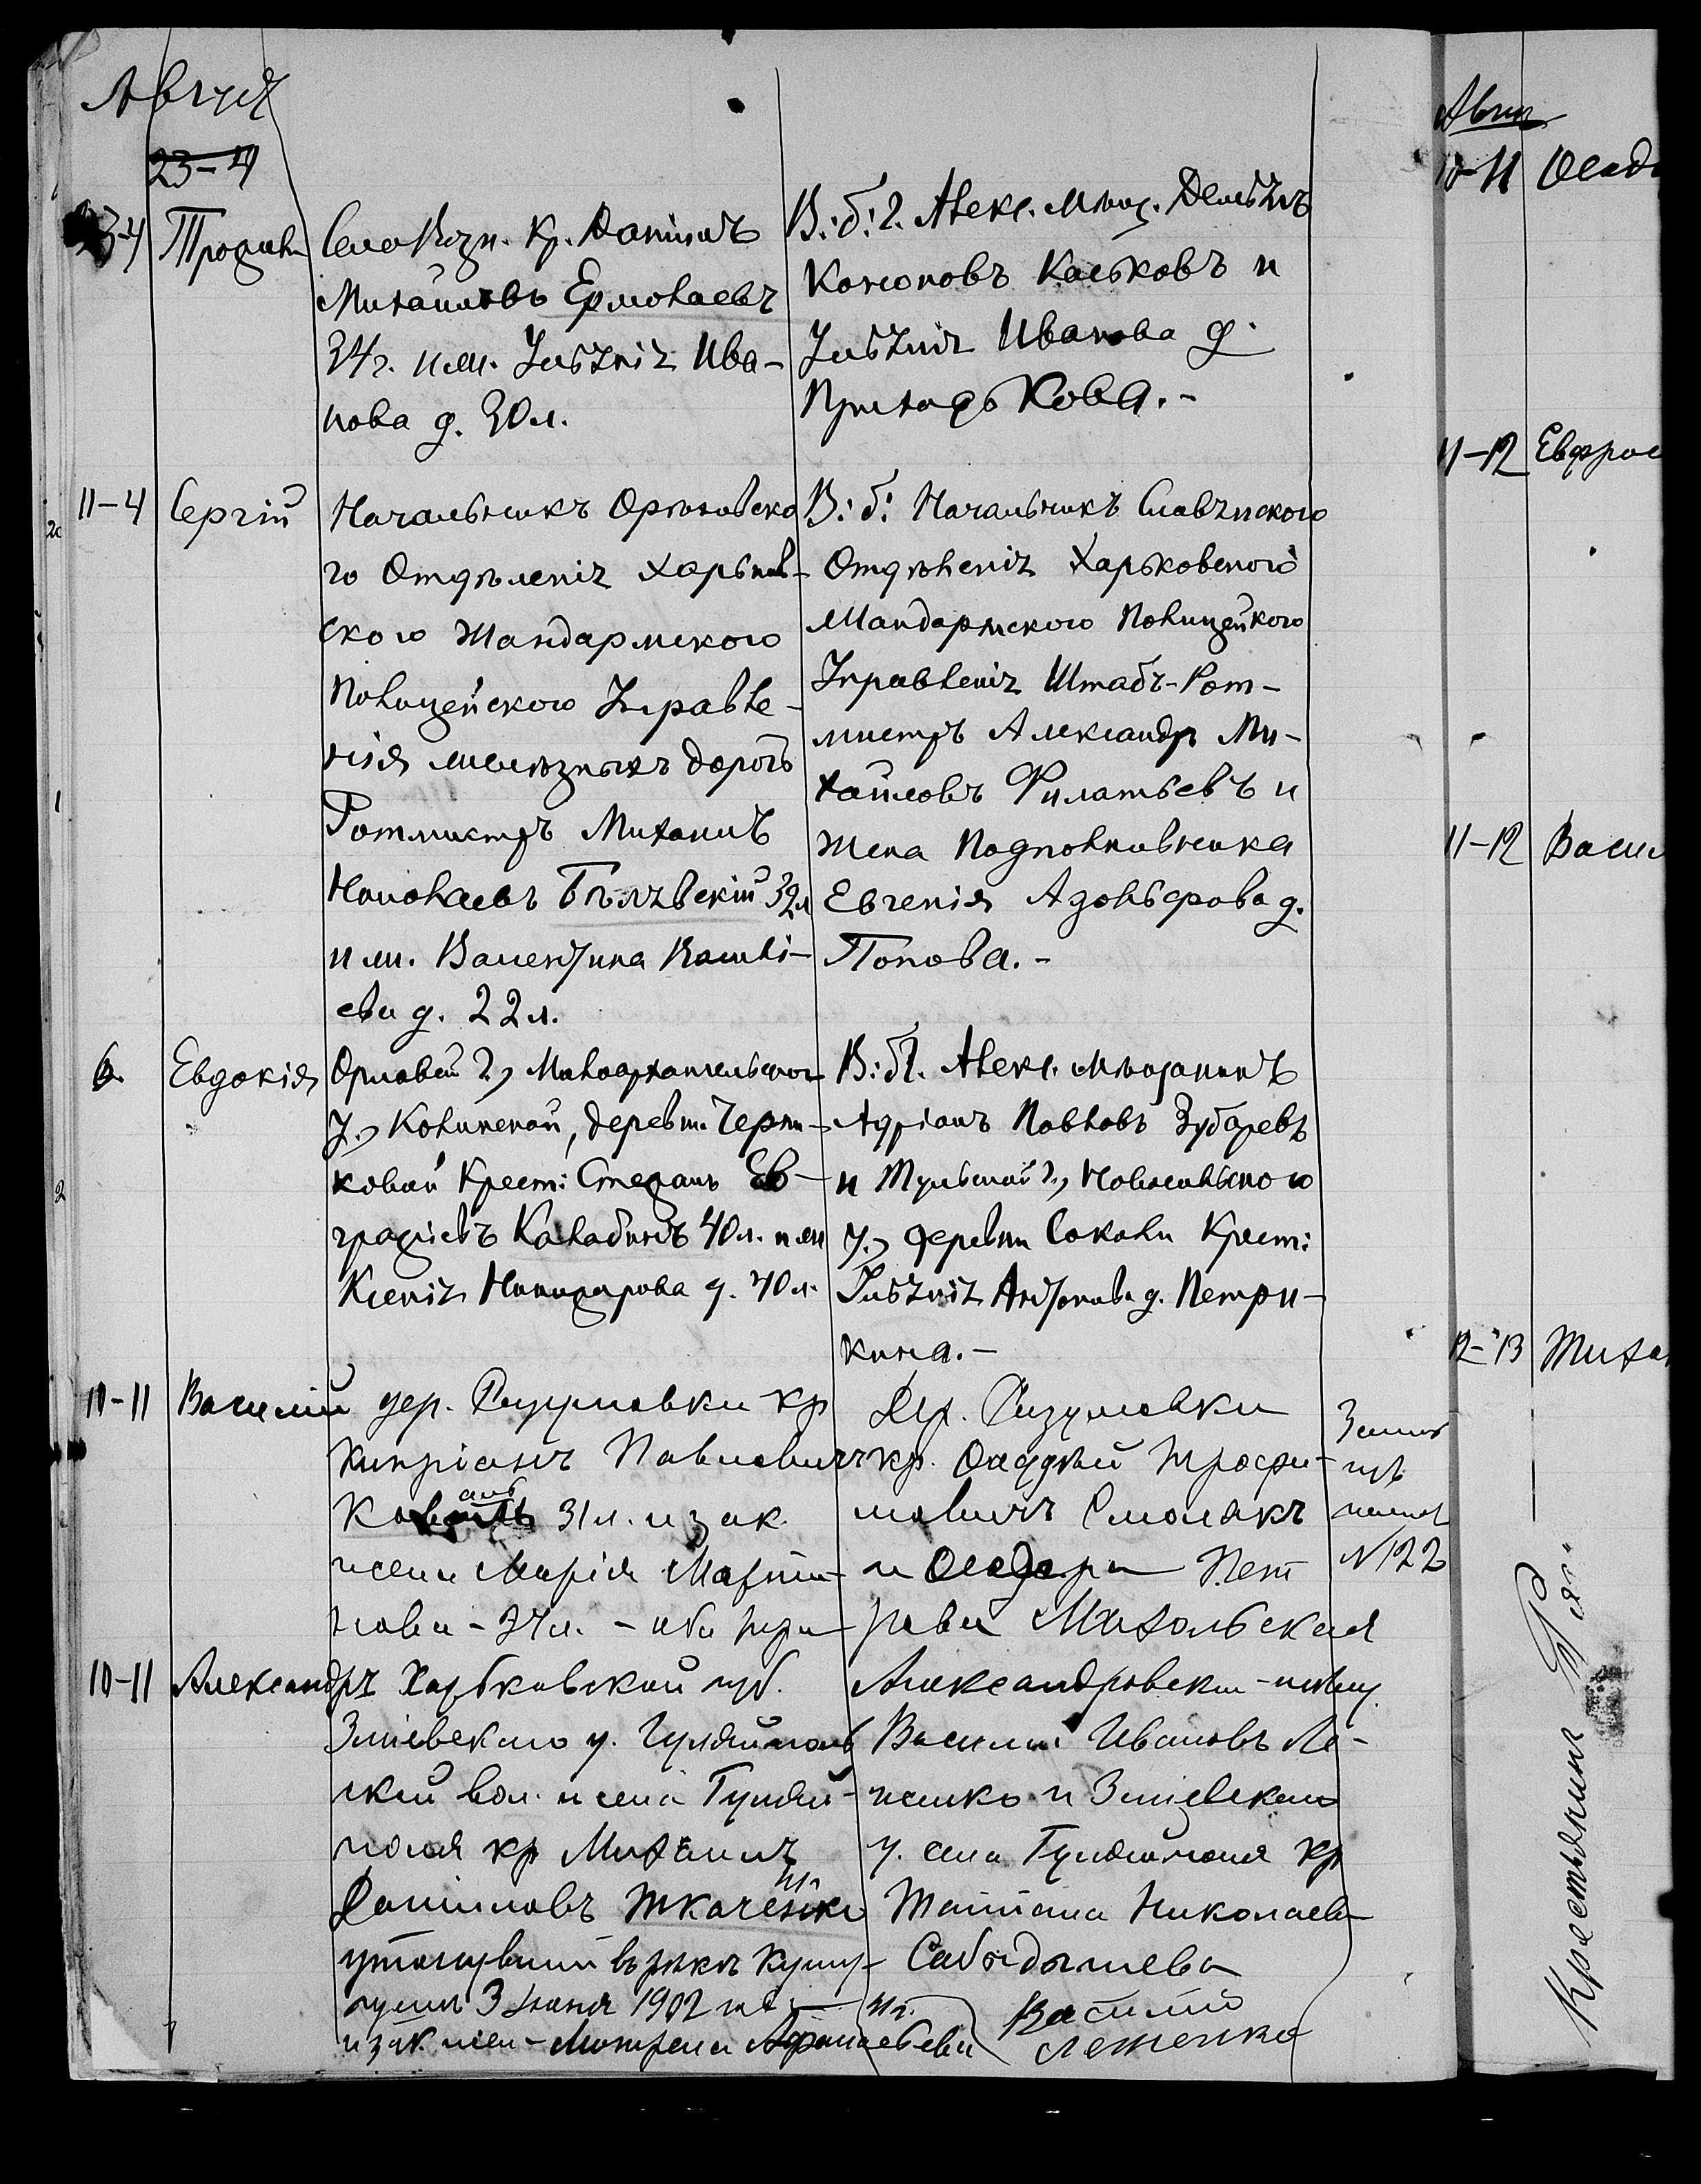 Август
23-4
23-4 Трофимъ
Село Возн. Кр. Даніилъ
Михайловъ Ермолаевъ
34 г. и ж. Iустинія Ива-
нова д. 30 л.
В: б: г. Алекс. мѣщ. Демьянъ
Кононовъ Каськовъ и
Іустинія Иванова д.
Приходькова.-
11-4 Сергій
Начальникъ Орѣховско
го Отдѣленія Харьков-
скаго Жандармскаго
Полицейского Управле-
нія желѣзныхъ дорогъ
Ротмистръ Михаилъ
Николаевъ Бѣлявскій 32 л
и ж. Валентина Василі-
ева д. 22 л.
В: б: Начальникъ Славянского
Отдѣленія Харьковского
Жандармского Полицейского
Управленія Штабъ-Рот-
мистръ Александръ Ми-
хайловъ Филатьевъ и
жена Подполковника
Евгенія Адольфова д.
Попова.-
6. Евдокія
Орловск г., Малоархангельског
у., Колпенской, деревн. Черни-
ковой Крест: Стефанъ Ев-
графіевъ Калабинъ 40 л. и ж
Ксенія Никифорова д. 40 л.
В: б г. Алекс. мѣщанинъ
Адріанъ Павловъ Зубаревъ
и Тульской г., Новосильского
у., деревни Соколи Крест:
Іустинія Антонова д. Петри-
кина.-
10-11 Василій
дер. Розумовки кр
Кипріанъ Павловичъ
31 л. и зак.
жена Марія Марти-
нова - 34 л. - оба пра
Дер. Розумовки
кр. Фаддей Трофи-
мовичъ Смолякъ
и Феодора Пет
рова Михальская
N 122
10-11 Александръ
Харьковской губ.
Зміевского у. Гуляйполь
ской вол. и села Гуляй-
поля кр Михаилъ
Даниловъ Ткаченко
утонувшій въ рѣкѣ Кушу-
гумъ 3 Іюня 1902 года
и зак. жен - Мотрена Афанасьева
Александровскій - мѣщ.
Василій Ивановъ Ле-
женко и Зміевского
у. села Гуляйполя кр
Татіана Николаева
Сабадышева
Василій
Леженко
Авгу
10-11 Феодо
11-12 Евфрос
11-12 Васил
12-13 Тихо
Крестьянинъ